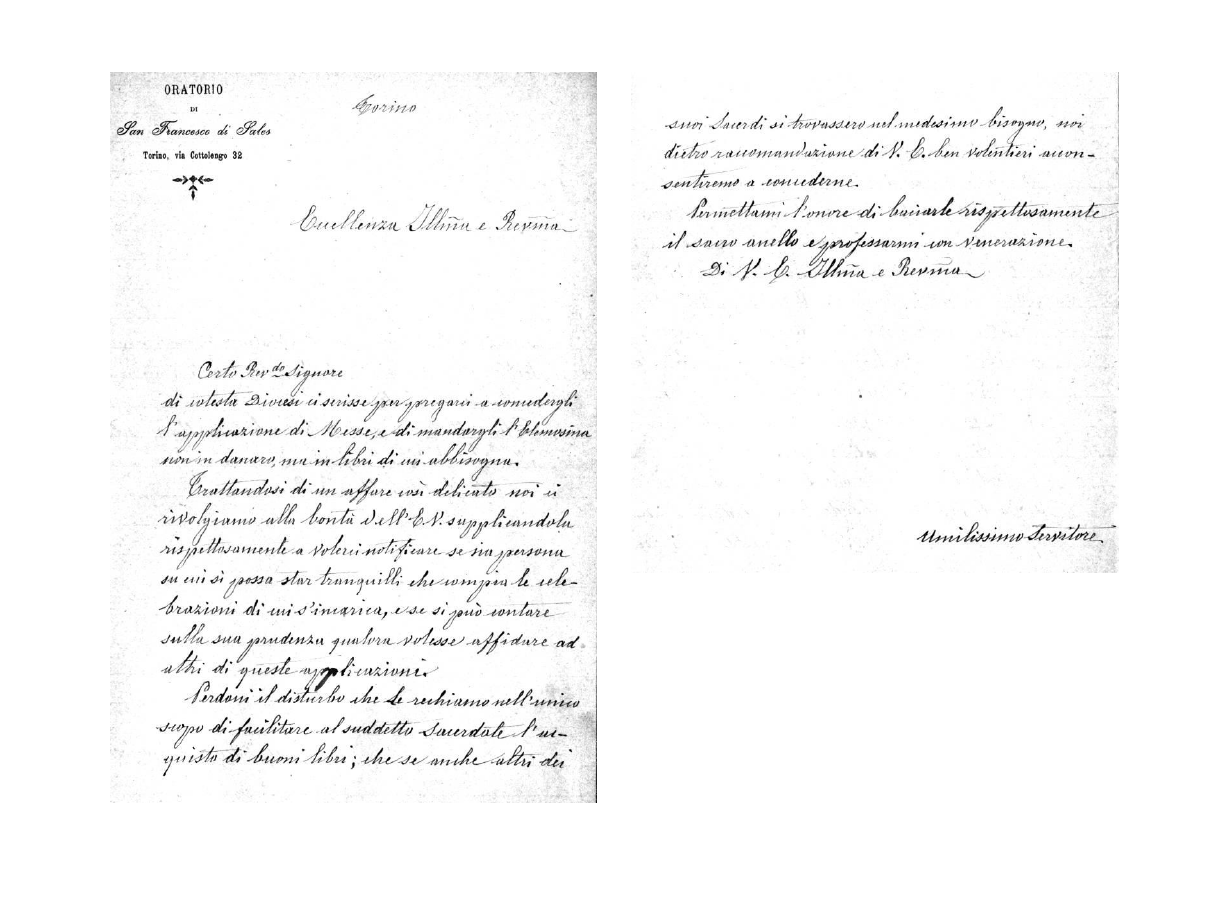 ORATORIO
DI
San Francesco di Sales
Torino, via Cottolengo 32
Torino
Eccellenza Illm̃a e Revm̃a
Certo Rev.do Signore
di cotesta Diocesi ci scrisse per pregarci a concedergli
l'applicazione di Messe, e di mandargli l'Elemosina
non in danaro, ma in libri di cui abbisogna.
Trattandosi di un affare così delicato noi ci
rivolgiamo alla bontà dell'E.V. supplicandola
rispettosamente a volerci notificare se sia persona
su cui si possa star tranquilli che compia le cele-
brazioni di cui s'incarica, e se si può contare
sulla sua prudenza qualora volesse affidare ad
altri di queste applicazioni.
Perdoni il disturbo che Le rechiamo nell'unico
scopo di facilitare al suddetto Sacerdote l'ac-
quisto di buoni libri; che se anche altri dei
suoi Sacerdi si trovassero nel medesimo bisogno, noi
dietro raccomandazione di V. E. ben volentieri accon-
sentiremo a concederne.
Permettami l'onore di baciarle rispettosamente
il sacro anello e professarmi con venerazione.
Di V. E. Illm̃a e Revm̃a
Umilissimo Servitore